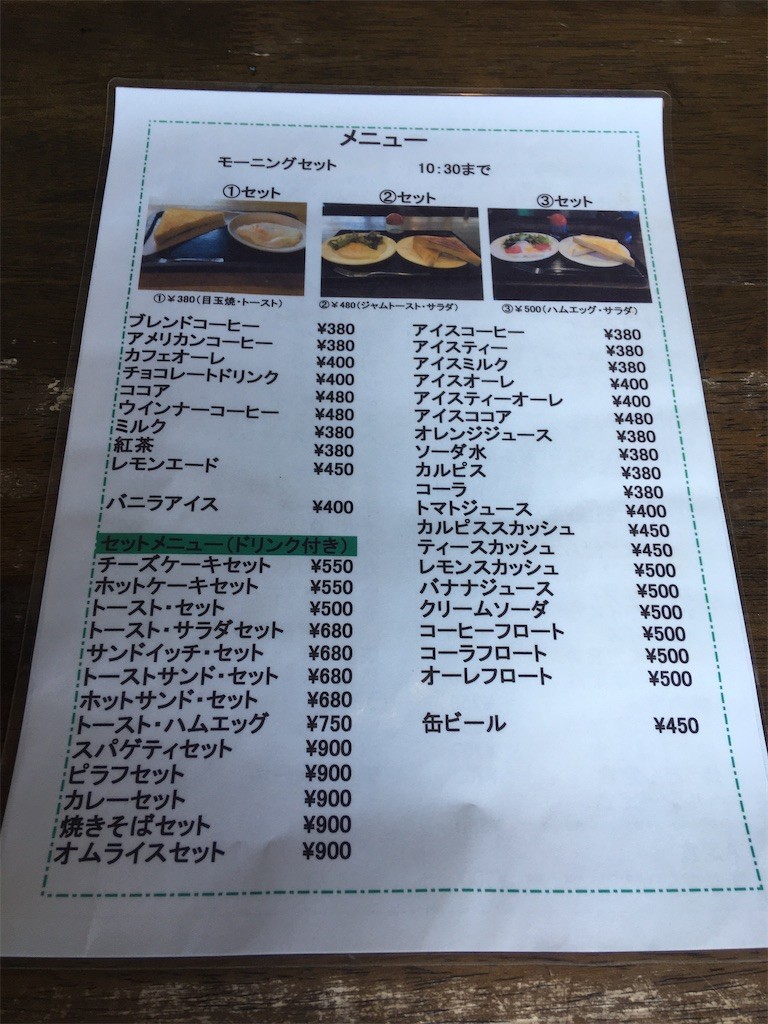 メニュー
モーニングセット 10:30まで
①セット ②セット ③セット
①¥380(目玉焼・トースト) ②¥480(ジャムトースト・サラダ) ③¥500(ハムエッグ・サラダ)
ブレンドコーヒー ¥380
アメリカンコーヒー ¥380
カフェオーレ ¥400
チョコレートドリンク ¥400
ココア ¥480
ウインナーコーヒー ¥480
ミルク ¥380
紅茶 ¥380
レモンエード ¥450
バニラアイス ¥400
セットメニュー(ドリンク付き)
チーズケーキセット ¥550
ホットケーキセット ¥550
トースト・セット ¥500
トースト・サラダセット ¥680
サンドイッチ・セット ¥680
トーストサンド・セット ¥680
ホットサンド・セット ¥680
トースト・ハムエッグ ¥750
スパゲティセット ¥900
ピラフセット ¥900
カレーセット ¥900
焼きそばセット ¥900
オムライスセット ¥900
アイスコーヒー ¥380
アイスティー ¥380
アイスミルク ¥380
アイスオーレ ¥400
アイスティーオーレ ¥400
アイスココア ¥480
オレンジジュース ¥380
ソーダ水 ¥380
カルピス ¥380
コーラ ¥380
トマトジュース ¥400
カルピススカッシュ ¥450
ティースカッシュ ¥450
レモンスカッシュ ¥500
バナナジュース ¥500
クリームソーダ ¥500
コーヒーフロート ¥500
コーラフロート ¥500
オーレフロート ¥500
缶ビール ¥450